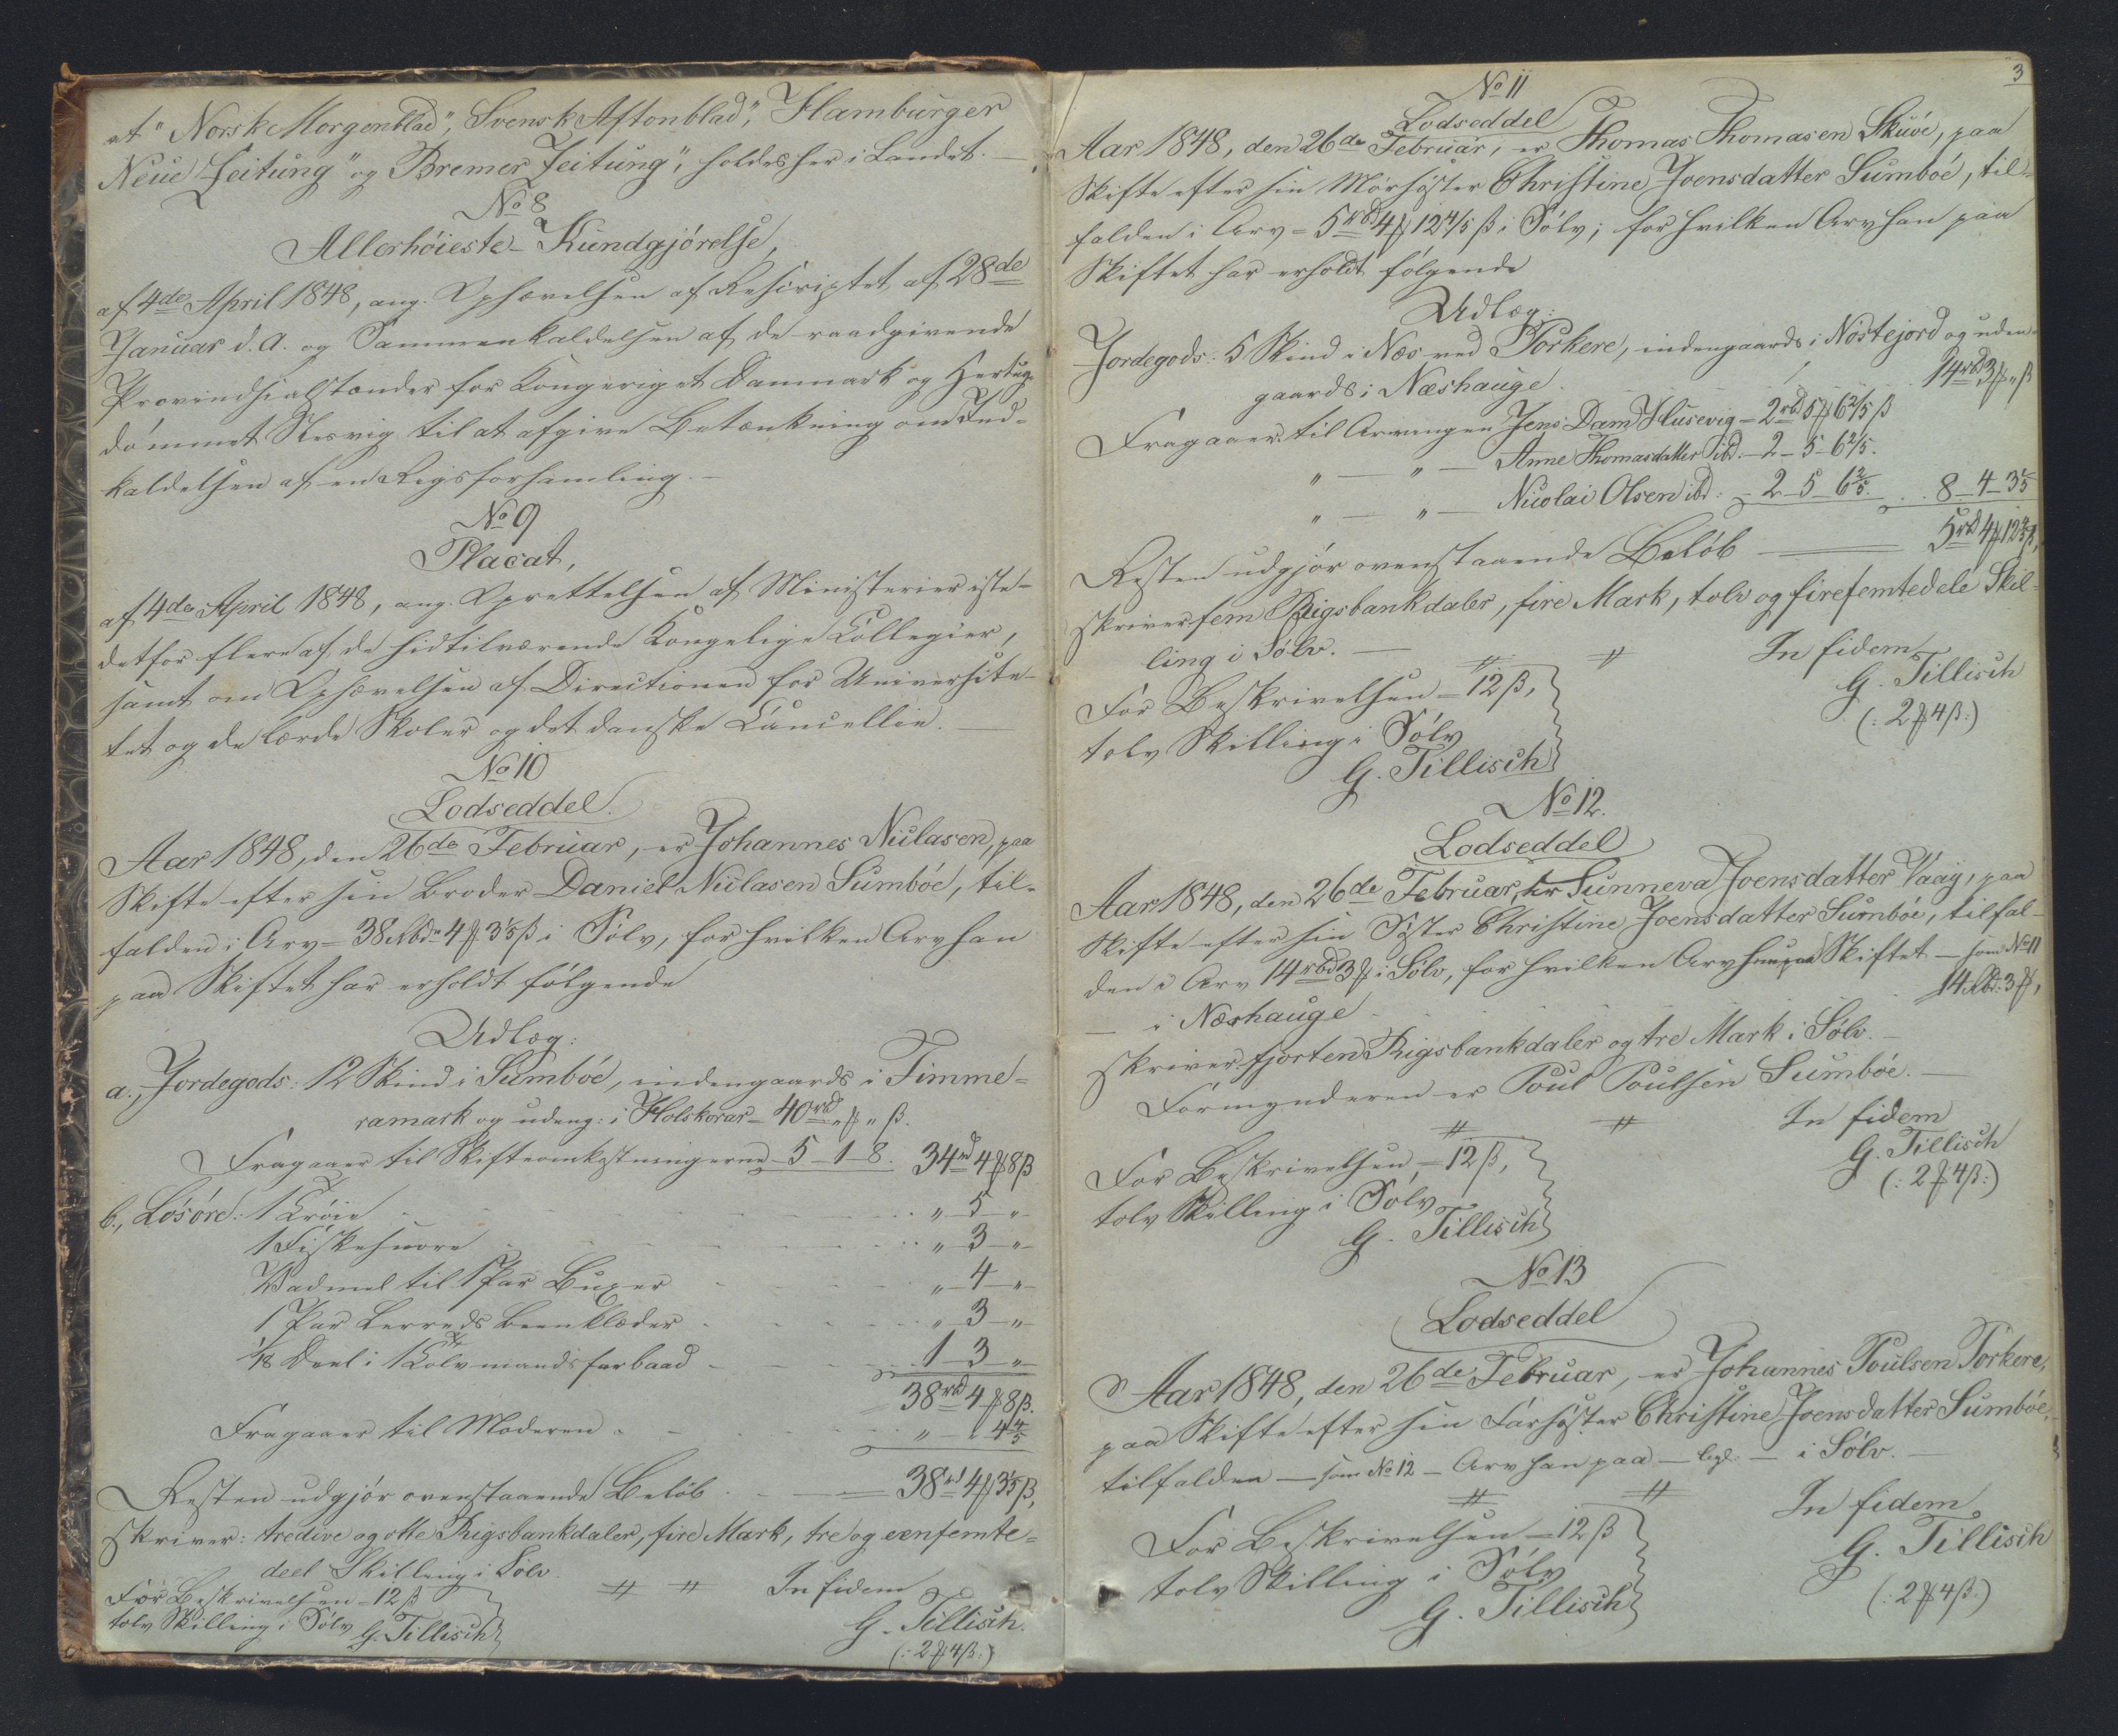 at "Norsk Morgenblad", Svensk Aftonblad", Hamburger
Neue Zeitung" og Bremer Zeitung", holdes her i Landet. —
No 8
Allerhöieste Kundgjörelse,
af 4de April 1848, ang. Ophævelsen af Rescriptet af 28de
Januar d. A. og Sammenkaldelsen af de raadgivende
Provindsialstænder for Kongeriget Danmark og Hertug-
dömmet Slesvig til at afgive Betænkning om Ind-
kaldelsen af en Rigsforsamling. —
No 9
Placat,
af 4de April 1848, ang. Oprettelsen af Ministerier iste-
detfor flere af de hidtilværende Kongelige Collegier,
samt om Ophævelsen af Directionen for Universite-
tet og de lærde Skoler og det danske Cancellie. —
No 10
Lodseddel.
Aar 1848, den 26de Februar, er Johannes Niclasen, paa
Skifte efter sin Broder Daniel Niclasen Sumböe, til-
falden i Arv = 38 Rbd 4 ℔ 3 1/5 ß i Sölv, for hvilken Arv han
paa Skiftet har erholdt fölgende
Udlæg:
a., Jordegods: 12 Skind i Sumböe, indengaards i Timme-
ramark og udeng: i Holskorar = 40 rbd " ℔ " ß.
Fragaaer til Skifteomkostningerne 5 - 1 - 8. 34 rd 4 ℔ 8 ß
b., Lösöre: 1 Tröie " 5 "
1 Fiskesnöre " 3 "
Vadmel til 1 Par Buxer " 4 "
1 Par Lerreds Beenklæder " 3 "
1/18 Deel i 1 Tolvmandsfarbaad 1 3 "
38 rbd 4 ℔ 8 ß.
Fragaaer til Moderen " " 4 4/5
Resten udgjör ovenstaaende Belöb 38 rd 4 ℔ 3 1/5 ß,
skriver: tredive og otte Rigsbankdaler, fire Mark, tre og eenfemte-
deel Skilling i Sölv.
For Beskrivelsen = 12 ß
tolv Skilling i Sölv
G. Tillisch
In fidem
G. Tillisch.
(: 2 ℔ 4 ß :)
3
No 11
Lodseddel
Aar 1848, den 26de Februar, er Thomas Thomasen Skuöe, paa
Skifte efter sin Morsöster Christine Joensdatter Sumböe, til-
falden i Arv = 5 rbd 4 ℔ 12 4/5 ß i Sölv; for hvilken Arv han paa
Skiftet har erholdt fölgende
Udlæg:
Jordegods: 5 Skind i Næs ved Porkere, indengaards i Nöstejord og uden-
gaards i Næshauge. 14 rbd 3 ℔ " ß
Fragaaer til Arvingen Jens Dam Husevig = 2 rbd 5 ℔ 6 2/5 ß
" — " — Anne Thomasdatter ibd. — 2 - 5 - 6 2/5.
" — " — Nicolai Olsen ibd: - 2 - 5 - 6 2/5. 8 - 4 - 3 1/5
Resten udgjör ovenstaaende Belöb 5 rbd 4 ℔ 12 4/5 ß,
skriver fem Rigsbankdaler, fire Mark, tolv og firefemtedele Skil-
ling i Sölv. —
For Beskrivelsen = 12 ß,
tolv Skilling i Sölv
G. Tillisch
In fidem
G. Tillisch
(: 2 ℔ 4 ß :)
No 12.
Lodseddel
Aar 1848, den 26de Februar, er Sunneva Joensdatter Vaag, paa
Skifte efter sin Söster Christine Joensdatter Sumböe, tilfal-
den i Arv 14 rbd 3 ℔ i Sölv, for hvilken Arv hun paa Skiftet — som No 11
— i Næshauge 14 Rbd: 3 ℔,
skriver fjorten Rigsbankdaler og tre Mark i Sölv. —
Formynderen er Poul Poulsen Sumböe. —
For Beskrivelsen = 12 ß,
tolv Skilling i Sölv
G. Tillisch
In fidem
G. Tillisch
(: 2 ℔ 4 ß :)
No 13
Lodseddel
Aar 1848, den 26de Februar, er Johannes Poulsen Porkere,
paa Skifte efter sin Farsöster Christine Joensdatter Sumböe,
tilfalden — som No 12 — Arv han paa — — i Sölv. —
For Beskrivelsen = 12 ß
tolv Skilling i Sölv
G. Tillisch
In fidem
G. Tillisch
(: 2 ℔ 4 ß :)